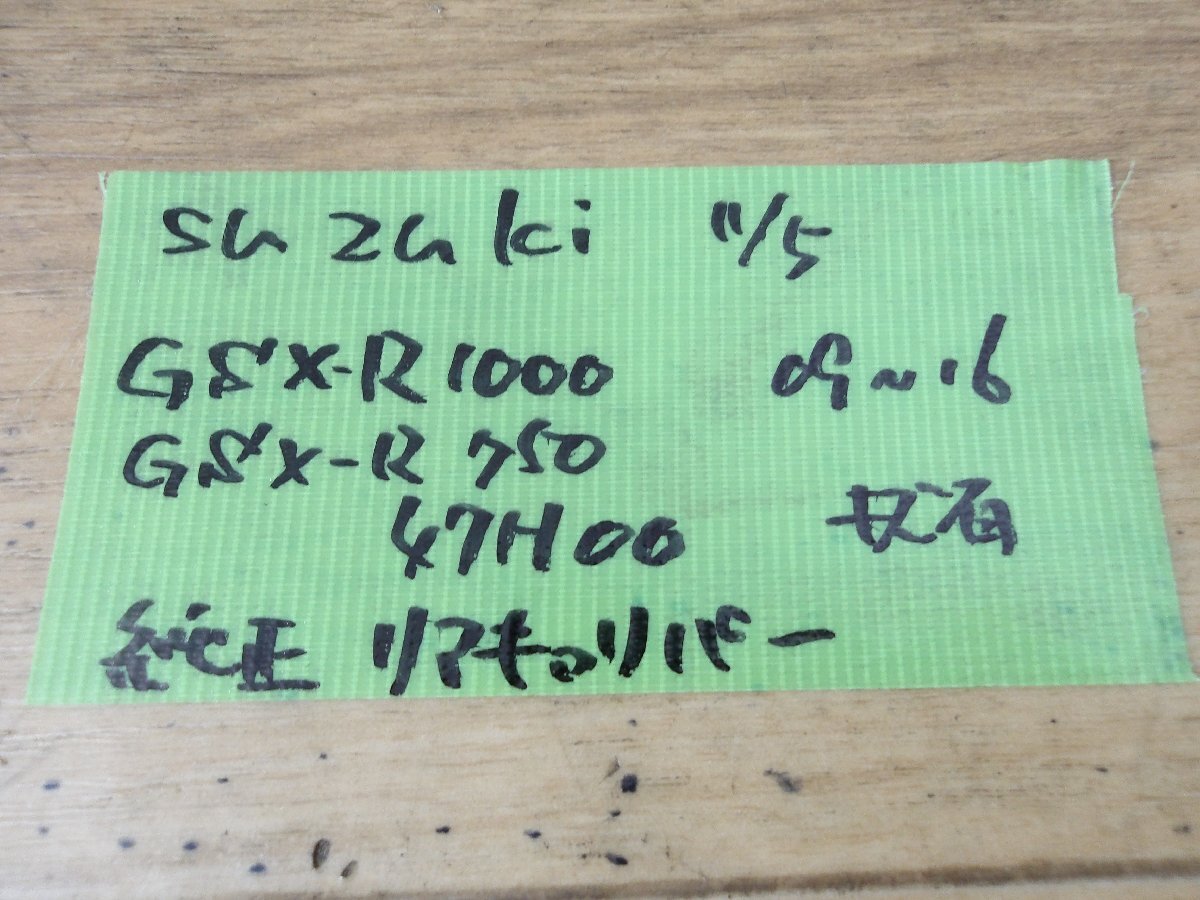 suzuki 11/5
GSX-R1000 09~16
GSX-R 750
47H00
純正 リアキャリパー